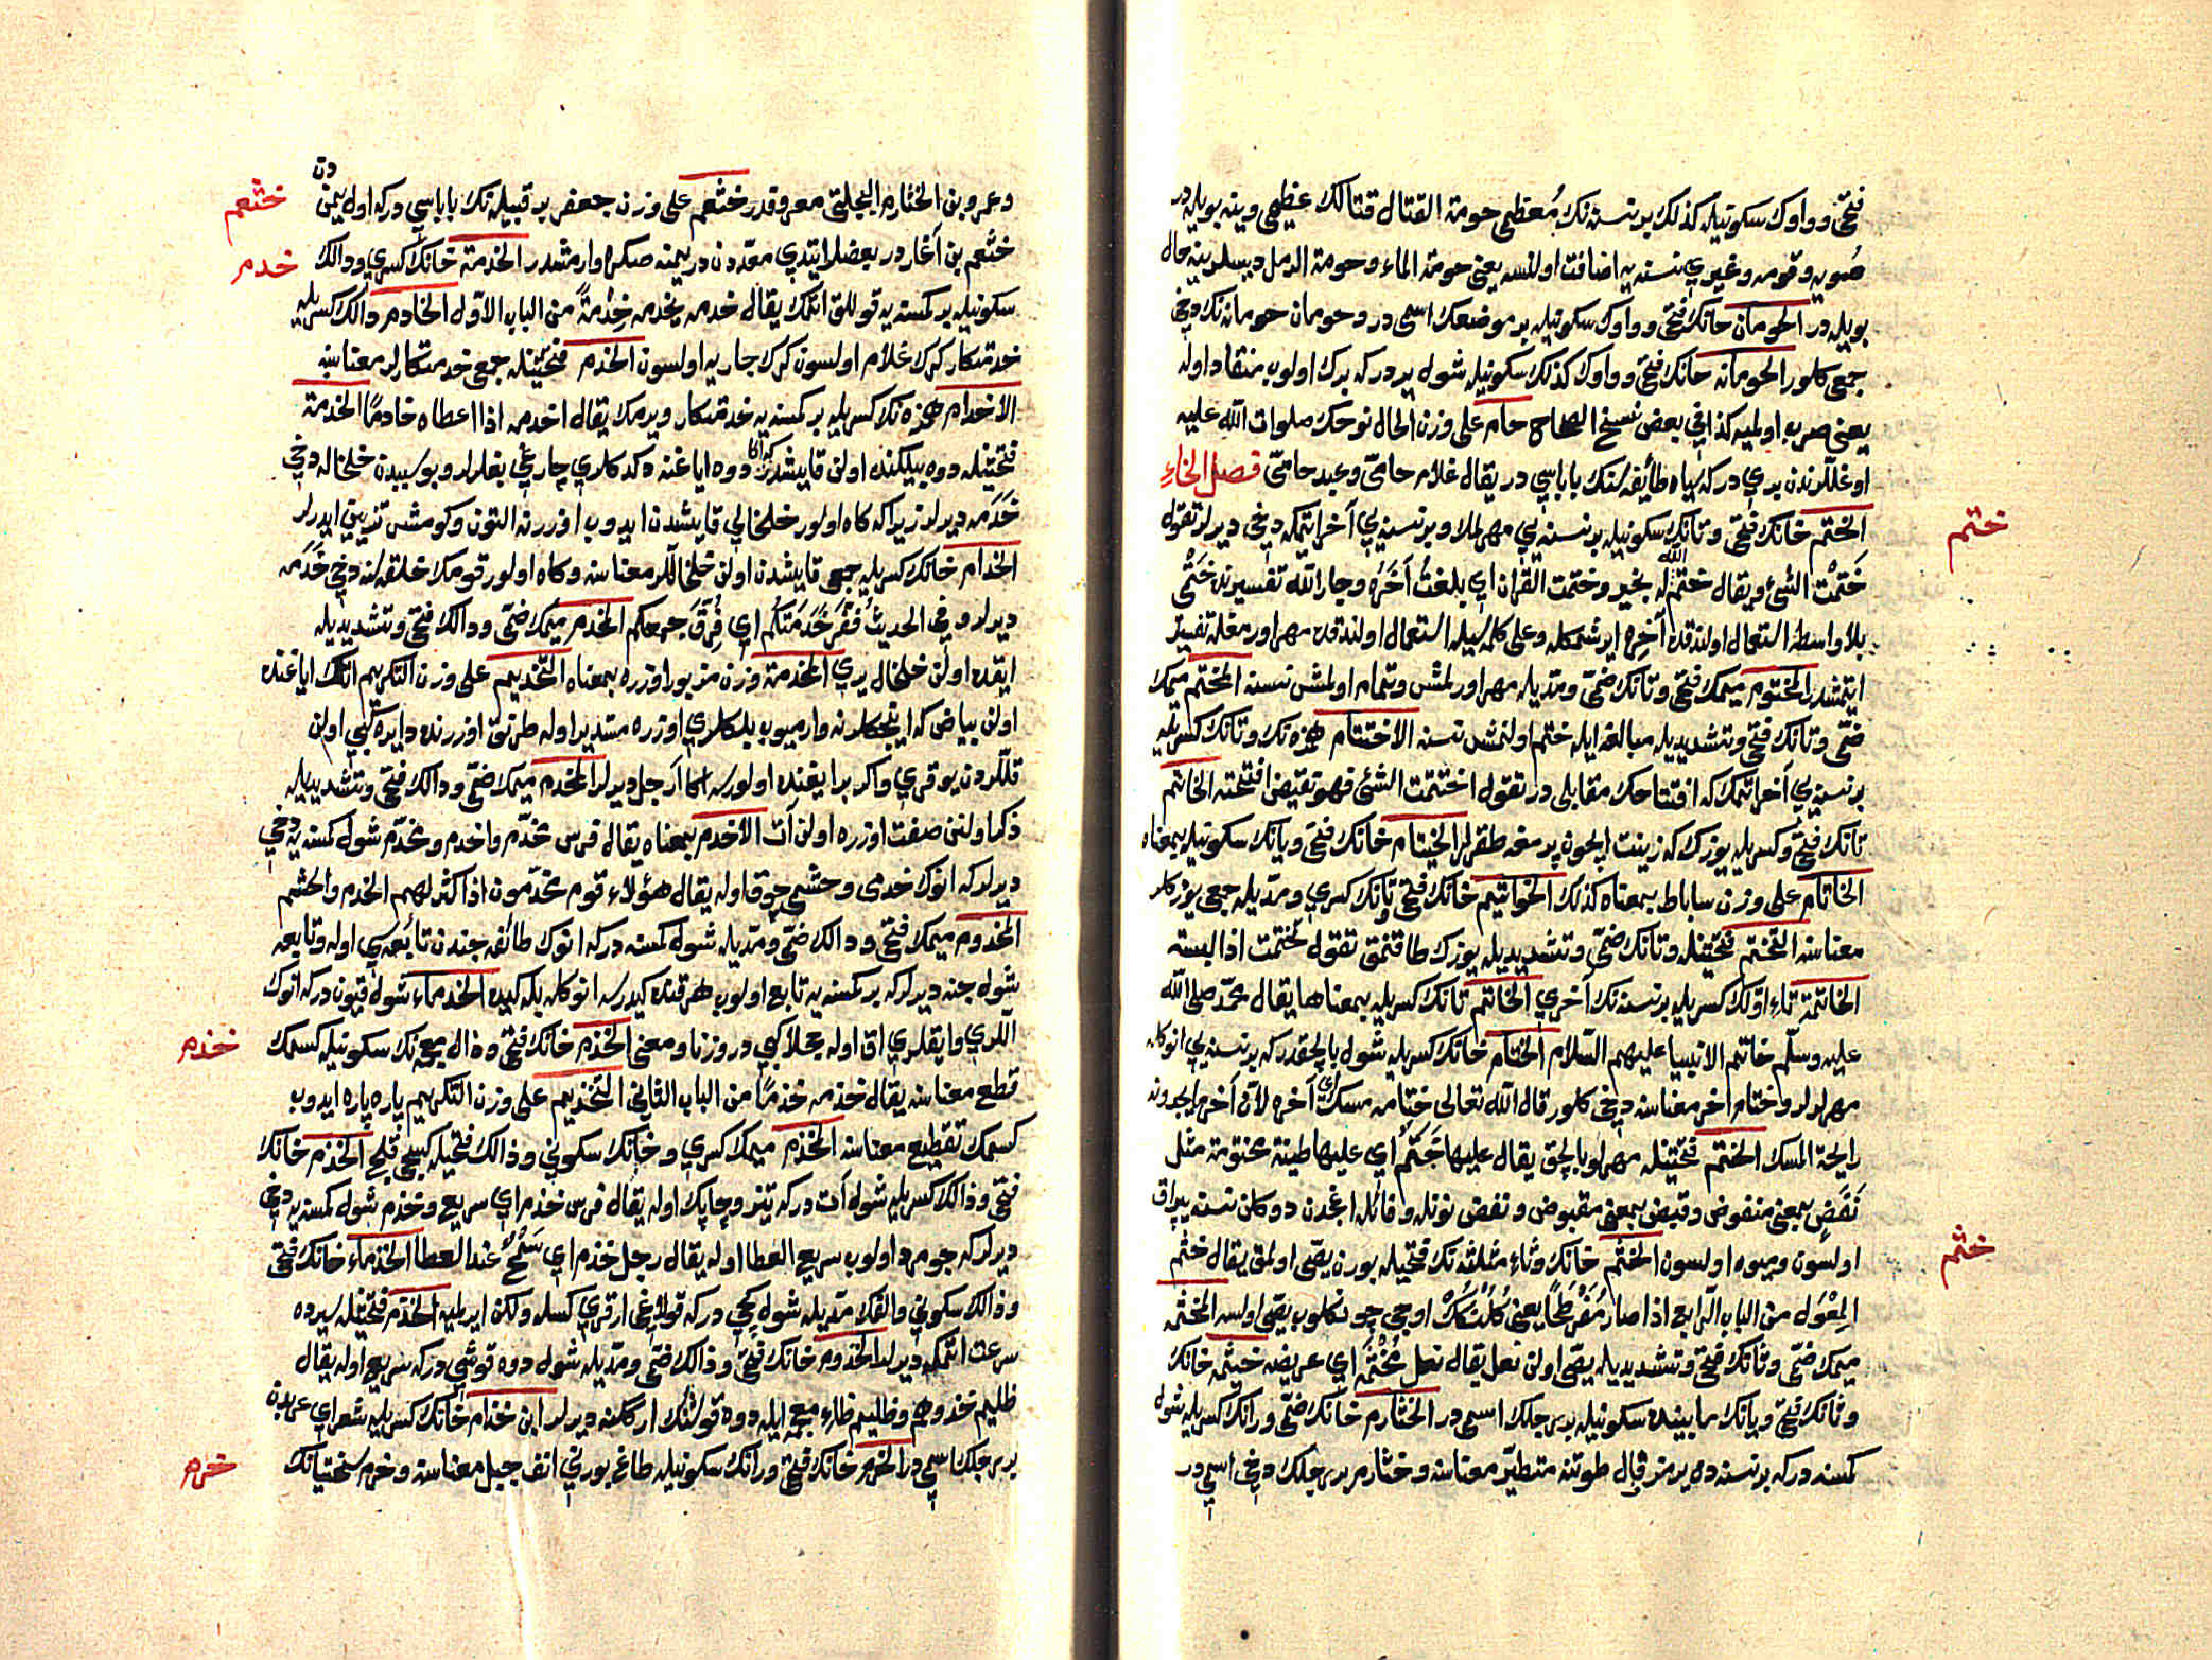 فتحی و واوك سكونیله كذلك بر نسنه نك مُعظمی حومة القتال قتالك عظیمی وینه بویله در
صُویه و قومه و غیری نسنه یه اضافت اولنسه یعنی حومة الماء و حومة الرمل دیسلر ینه حال
بویله در الحومان حانك فتحی و واوك سكونیله بر موضعك اسمی در و حومان حومانه نك دخی
جمعی كلور الحومانه حانك فتحی و واوك كذلك سكونیله شول یر در كه برك اولوب منقاد اوله
یعنی صرب اولمیه كذا فی بعض نسخ الصحاح حام علی وزن الحال نوحك صلوات الله علیه
اوغللرندن بری در كه سیاه طائفه سنك باباسی در یقال غلام حامیّ وعبد حامیّ فصل الخاء
ختم
الختم خانك فتحی و تانك سكونیله بر نسنه یی مهرلمك و بر نسنه یی آخر ایتمكه دخی دیرلر تقول
خَتمْت الشئ و یقال ختم الله له بخیر وختمت القران ای بلغتُ آخَرَه وجار الله تفسیرنده خَتْمی
بلا واسطه استعمال اولندقده آخره ایرشمكله و علی كلمه سیله استعمال اولندقده مهر اورمغله تفسیر
ایتمشدر المختوم میمك فتحی و تانك ضمی و مدیله مهر اورلمش و تمام اولمش نسنه المختم میمك
ضمی و تانك فتحی و تشدیدیله مبالغه ایله ختم اولنمش نسنه الاختتام همزه نك و تانك كسریله
بر نسنه یی آخر ایتمك كه افتتاحك مقابلی در تقول اختتمت الشئ فهو نقیض افتتحته الخاتم
تانك فتحی و كسریله یوزك كه زینت ایچون پرمغه طقرلر الخیتام خانك فتحی و یانك سكونیله بمعناه
الخاتام علی وزن ساباط بمعناه كذلك الخواتیم خانك فتحی تانك كسری و مدیله جمعی یوزكلر
معناسنه التختم فتحتینله و تانك ضمی و تشدیدیله یوزك طاقنمق تقول تختمت اذا لبسته
الخاتمة تاء اولك كسریله بر نسنه نك آخری الخاتم تانك كسریله بمعناها یقال محمّد صلی الله
علیه وسلّم خاتم الانبیا علیهم السّلام الختام خانك كسریله شول بالچقدر كه بر نسنه یی انوكله
مهرلرلر و ختام آخر معناسنه دخی كلور قال الله تعالی ختامه مسك ای آخره لأن آخر ما یجدونه
رایحة المسك الختم فتحتینله مهرلو بالچق یقال علیها خَتَم ای علیها طینة مختومة مثل
نَفَض بمعنی منفوض وقبض بمعنی مقبوض و نفض نونله و فائله اغجدن دوكلن نسنه یپراق
ختم
اولسون و میوه اولسون الخثم خانك و ثاء مثلثه نك فتحیله بورن یصّی اولمق یقال خثم
المِعْوَل من الباب الرابع اذا صار مُفَرْطَحًا یعنی كُلُنْكْ اوجی چونكلوب یصّی اولسه المخثمه
میمك ضمی و ثانك فتحی و تشدیدیله یصّی اولن نعل یقال نعل مُخْثَمَه ای عریضه خیثمه خانك
و ثانك فتحی و یانك ما بینده سكونیله بر رجلك اسمی در الخثارم خانك ضمی و رانك كسریله شول
كمسنه در كه بر نسنه ده یرمز فال طوتنه متطیّر معناسنه و خثارم بر رجلك دخی اسمی در
وعمرو بن الخثارم البجلیّ معروفدر خثعم علی وزن جعفر بر قبیله نك باباسی در كه اول یمن دن
خثعم
خثعم بن انمار در بعضلر ایتدی معدّدن در یمنه صكره وارمشدر الخدمة خانك كسری و دالك
خدم
سكونیله بر كمسنه یه قوللق ایتمك یقال خدمه یخدمه خِدْمةً من الباب الأول الخادم دالك كسریله
خدمتكار كرك غلام اولسون كرك جاریه اولسون الخدم فتحتینله جمعی خدمتكارلر معناسنه
الاخدام همزه نك كسریله بر كمسنه یه خدمتكار ویرمك یقال اخدمه اذا اعطاه خادمًا الخدمة
فتحتینله دوه بیلكنده اولن قایشدر كه اكا دوه ایاغنده دكدكلری چارغی بغلرلر و بو سببدن خلخاله دخی
خَدَمه دیرلر زیرا كه كاه اولور خلخالی قایشدن ایدوب اوزرنه التون و كومشی تزیین ایدرلر
الخدام خانك كسریله جمعی قایشدن اولن خلخاللر معناسنه و كاه اولور قومك حلقه سنه دخی خَدَمه
دیرلر و فی الحدیث فُضَّ خَدَمَتكُم ای فِرّق جمعكم المخدم میمك ضمّی و دالك فتحی و تشدیدیله
ایقده اولن خلخال یری المخدمة وزن مزبور اوزره بمعناه التخدیم علی وزن التكریم اتك ایاغنده
اولن بیاض كه اینجكلرنه وارمیوب بلكلری اوزره مستدیر اوله طرنق اوزرنده دایره كبی اولن
قللّردن یوقری و اكر بر ایغنده اولورسه اكا أرجل دیرلر المخدم میمك ضمّی و دالك فتحی و تشدیدیله
ذكر اولنن صفت اوزره اولن آت الاخدم بمعناه یقال فرس مخدّم واخدم و مخدّم شول كمسنه یه دخی
دیرلر كه انوك خدمی و حشمی چوق اوله یقال هؤلاء قوم مخدّمون اذا كثر لهم الخدم والحشم
المخدوم میمك فتحی و دالك ضمّی و مدّیله شول كمسنه در كه انوك طائفه جندن تابعه سی اوله و تابعه
شول جنه دیرلر كه بر كمسنه یه تابع اولوب هر قنده كیدرسه انوكله بله كیده الخدماء شول قیون در كه انوك
اللری وایقلری اق اوله حجلا كبی در وزنا ومعنی الخذم خانك فتحی و ذال معجمه نك سكونیله كسمك
خذم
قطع معناسنه یقال خذمه خذمًا من الباب الثانی التخذیم علی وزن التكریم پاره پاره ایدوب
كسمك تقطیع معناسنه المخذم میمك كسری و خانك سكونی و ذالك فتحیله كسیجی قلیج الخذم خانك
فتحی و ذالك كسریله شول آت در كه تیز و چاپك اوله یقال فرس خذم ای سریع و خذم شول كمسنه یه دخی
دیرلر كه جومرد اولوب سریع العطا اوله یقال رجل خذم ای سَمْحٌ عند العطا الخذماء خانك فتحی
و ذالك سكونی والفك مدّیله شول كچی در كه قولاغی ارقری كسله ولكن ایرلمیه الخذم فتحتینله سیرده
سرعت ایتمكه دیرلر الخذوم خانك فتحی و ذالك ضمّی و مدّیله شول دوه قوشی در كه سریع اوله یقال
ظلیم خذوم و ظلیم ظاء معجمه ایله دوه قوشنك ارككنه دیرلر ابن خذام خانك كسریله شعرای عربدن
بر رجلك اسمی در الخرم خانك فتحی و رانك سكونیله طاغ بورنی انف جبل معناسنه و خرم سختیانك
خرم